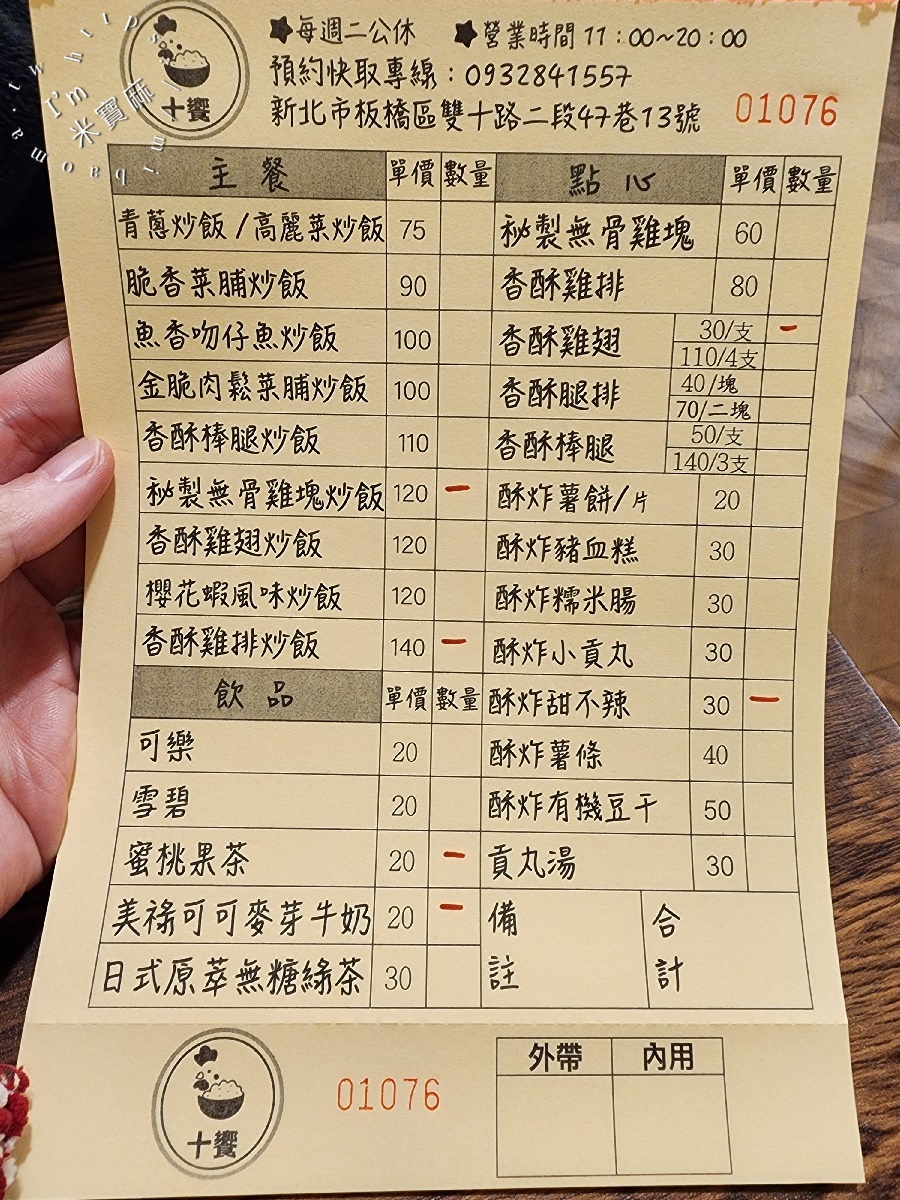 ★每週二公休 ★營業時間 11:00~20:00
預約快取專線:0932841557
新北市板橋區雙十路二段47巷13號 01076
十饗
I'm 米寶麻
主餐 單價 數量 點心 單價 數量
青蔥炒飯/高麗菜炒飯 75 秘製無骨雞塊 60
脆香菜脯炒飯 90 香酥雞排 80
魚香吻仔魚炒飯 100 香酥雞翅 30/支 一
110/4支
金脆肉鬆菜脯炒飯 100 香酥腿排 40/塊
70/二塊
香酥棒腿炒飯 110 香酥棒腿 50/支
140/3支
秘製無骨雞塊炒飯 120 一 酥炸薯餅/片 20
香酥雞翅炒飯 120 酥炸豬血糕 30
櫻花蝦風味炒飯 120 酥炸糯米腸 30
香酥雞排炒飯 140 一 酥炸小貢丸 30
飲品 單價 數量 酥炸甜不辣 30 一
可樂 20 酥炸薯條 40
雪碧 20 酥炸有機豆干 50
蜜桃果茶 20 一 貢丸湯 30
美祿可可麥芽牛奶 20 一 備註 合計
日式原萃無糖綠茶 30
十饗 01076 外帶 內用